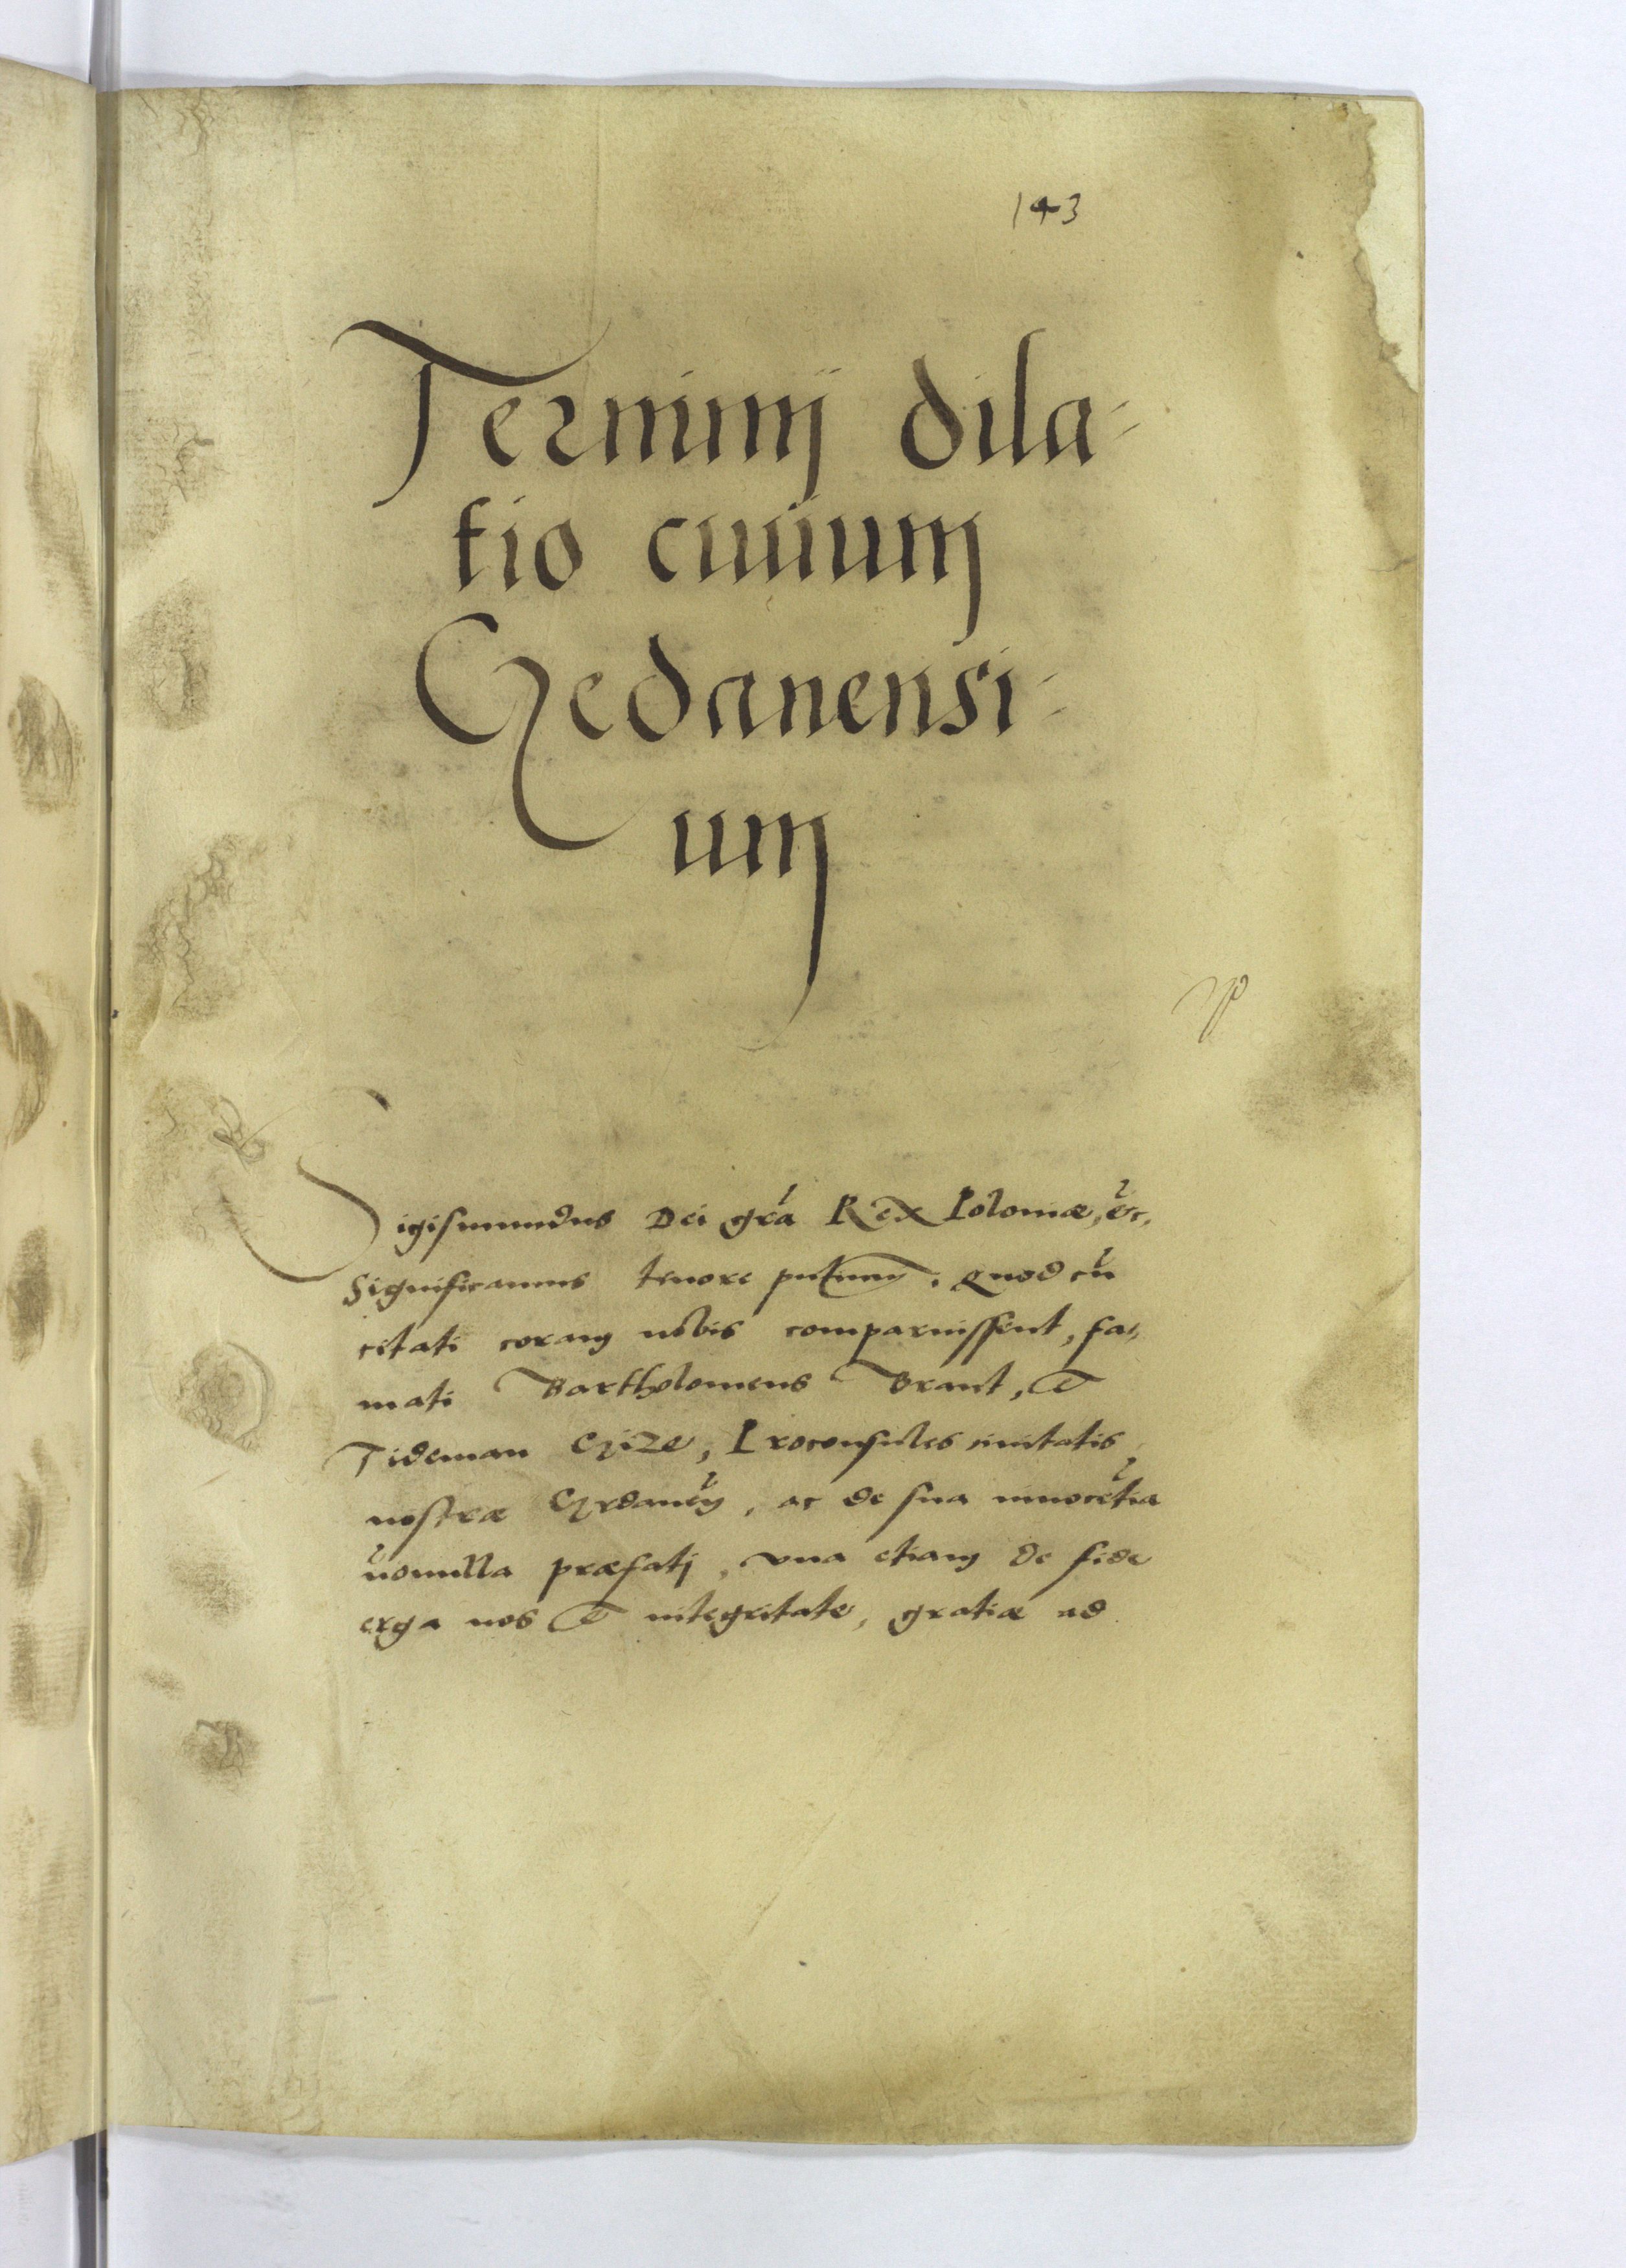 143
Terminj dila-
tio ciuium
Gedanensi-
um
Sigismundus Dei gra Rex Poloniæ, &c.
Significamus tenore pntium. Quod cu
citati coram nobis comparuissent, fa-
mati Bartholomeus Brant, &
Tideman Gize, Proconsules ciuitatis
nostræ Gedaneñ, ac de sua innocetia
nonnulla præfatj, vna etiam de fide
erga nos & integritate, gratiæ ad